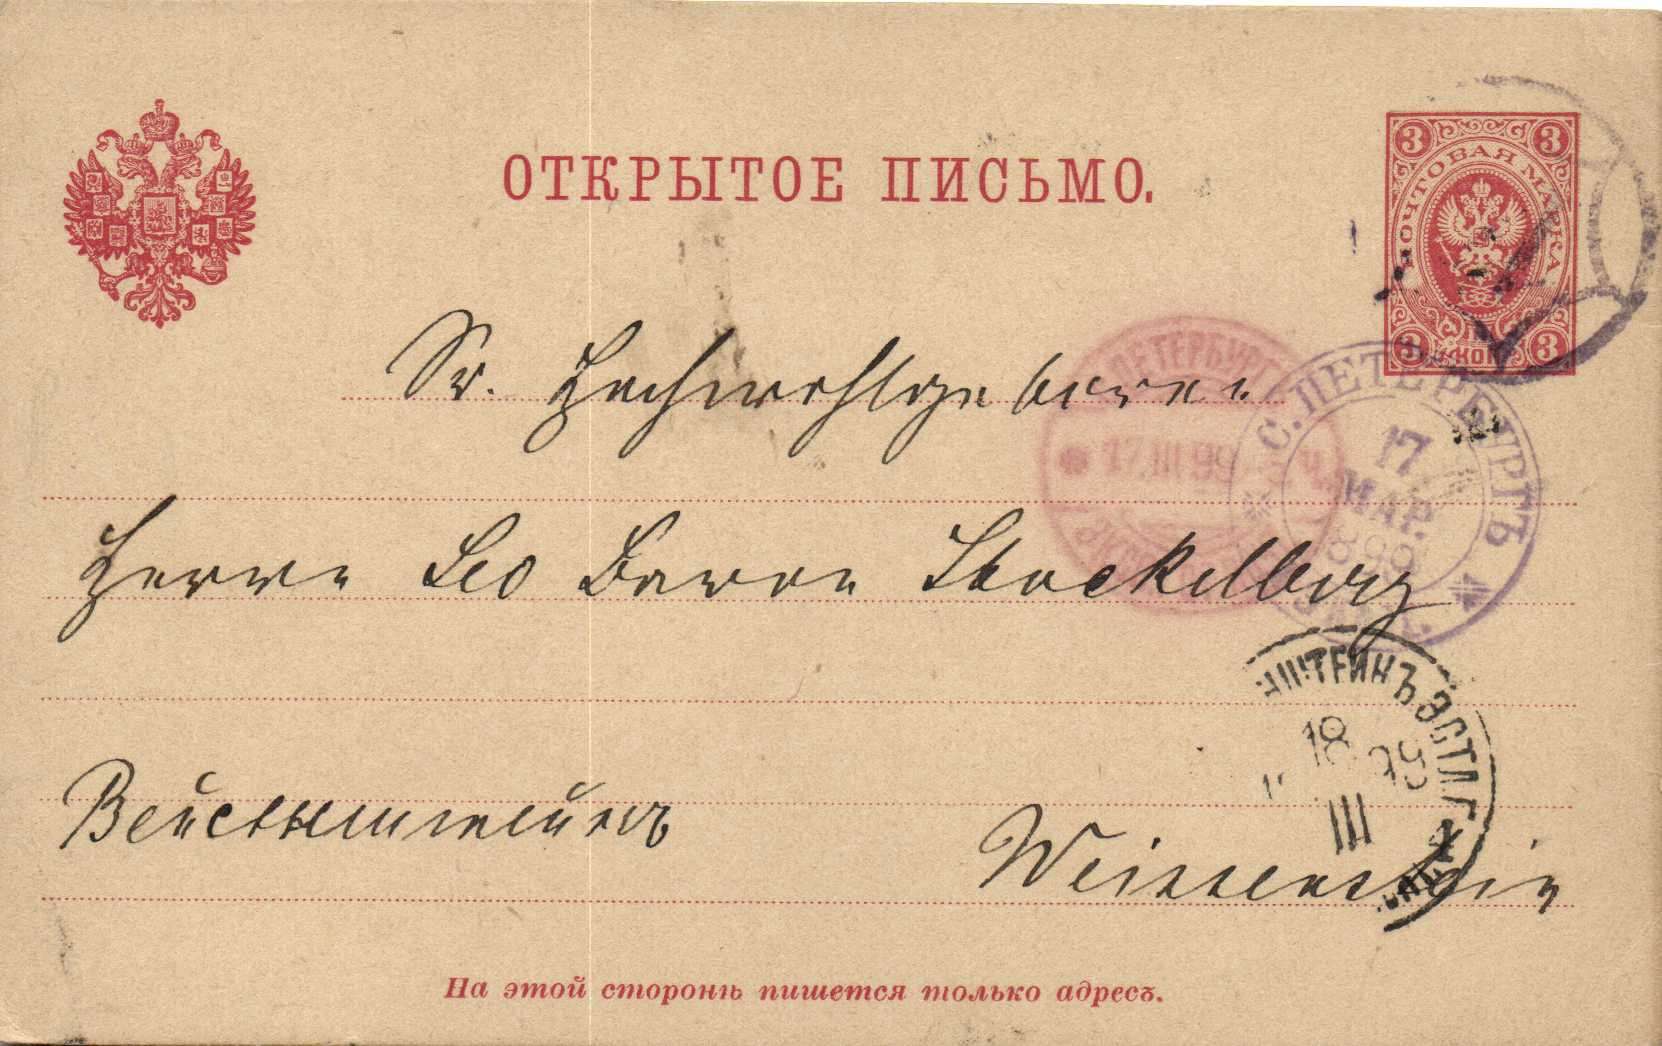 ОТКРЫТОЕ ПИСЬМО.
3 3
ПОЧТОВАЯ МАРКА
3 КОП. 3
Sr. Hochwohlgeboren
С. ПЕТЕРБУРГЪ
17 III 99
С. ПЕТЕРБУРГЪ
17
МАР.
1899
Herrn Leo Baron Stackelberg
ШТЕЙНЪ ЭСТЛ. Г.
18 III 99
Вейсенштейнъ
Weissenstein
На этой сторонѣ пишется только адресъ.